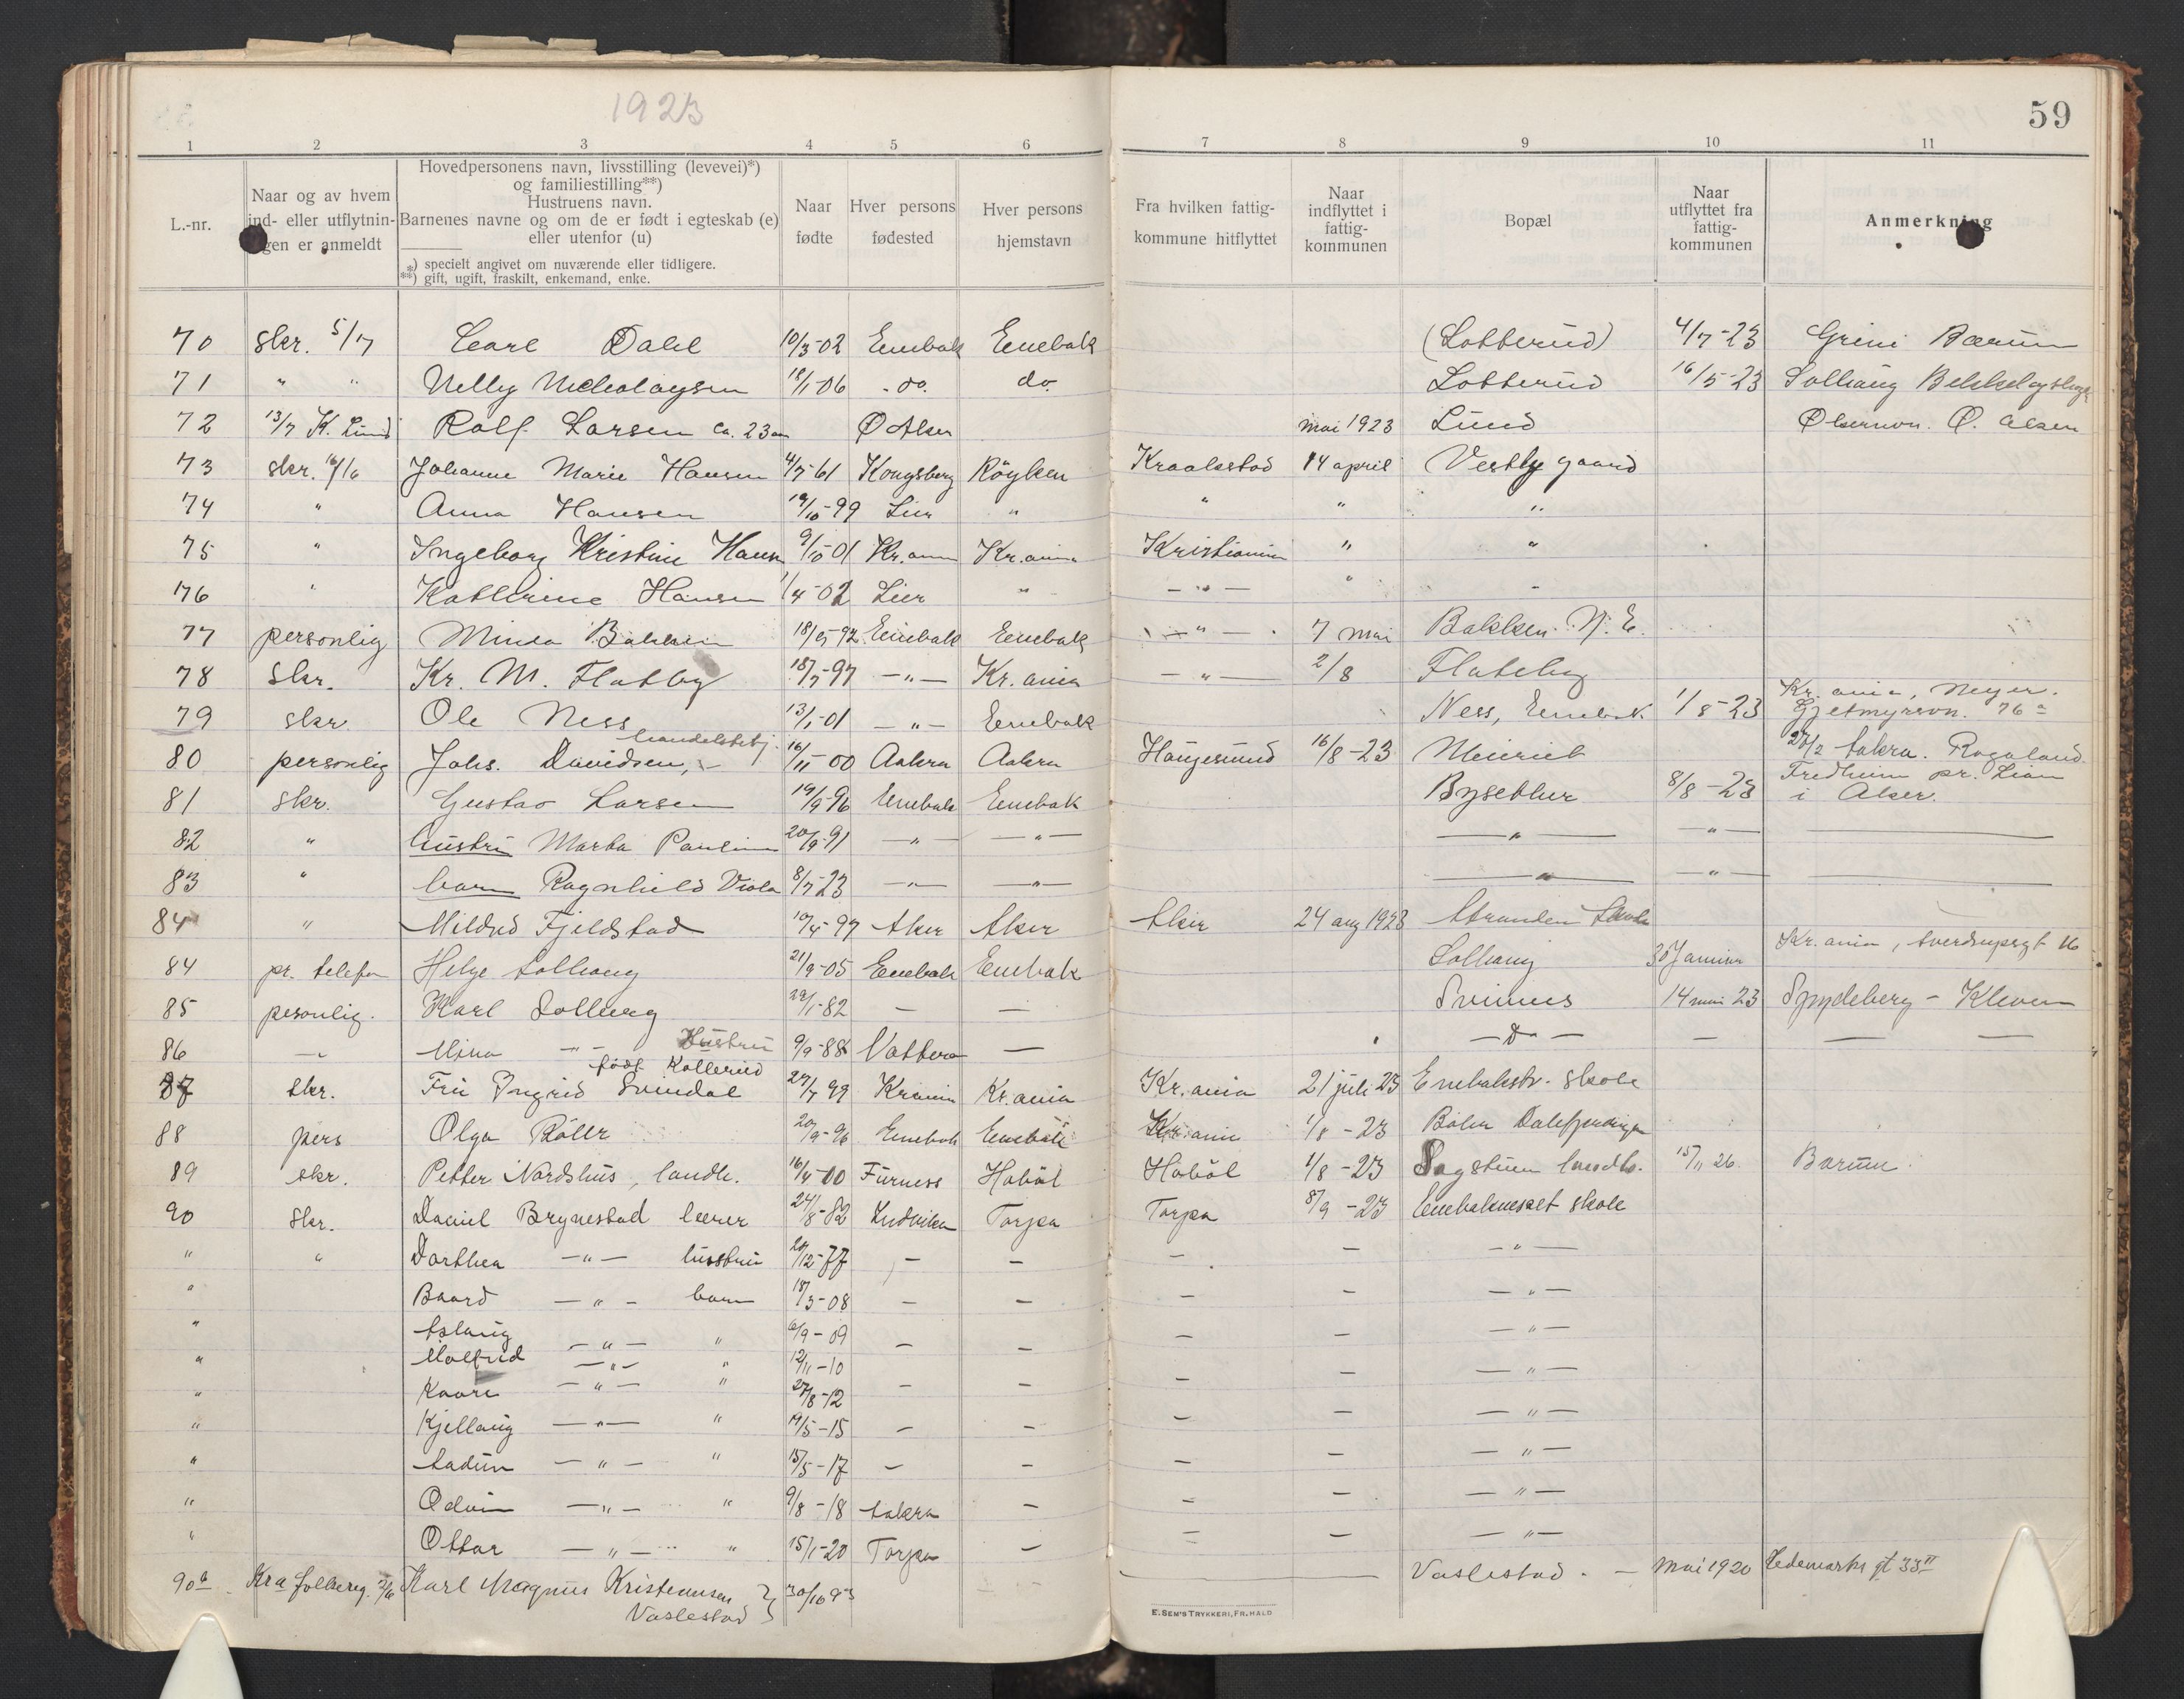 1923
59
1 2 3 4 5 6 7 8 9 10 11
L.-nr.
Naar og av hvem ind- eller utflytningen er anmeldt
Hovedpersonens navn, livsstilling (levevei)*)
og familiestilling**)
Hustruens navn.
Barnenes navne og om de er født i egteskab (e)
eller utenfor (u)
*) specielt angivet om nuværende eller tidligere.
**) gift, ugift, fraskilt, enkemand, enke.
Naar fødte
Hver persons fødested
Hver persons hjemstavn
Fra hvilken fattigkommune hitflyttet
Naar indflyttet i fattigkommunen
Bopæl
Naar utflyttet fra fattigkommunen
Anmerkning
70 skr. 5/7 Carl Dahl 10/3-02 Enebak Enebak (Lotterud) 4/7-23 Grini Bærum
71 " " Nelly Nicolaysen 18/1-06 do. do. Lotterud 16/5-23 Solhaug
72 13/7 K. Lund Rolf Larsen ca. 23 aar Ø Aker mai 1923 Lund Ø. Aker
73 skr. 16/6 Johanne Marie Hansen 4/7-61 Kongsberg Røyken Kraakstad 14 april Vestby gaard
74 " Anna Hansen 19/10-99 Lier " " " "
75 " Ingeborg Kristine Hansen 9/10-01 Kr.ania Kr.ania Kristiania " "
76 " Kathrine Hansen 1/4-02 Lier " — " — " "
77 personlig Minda Bakken 18/5-92 Enebak Enebak — " — 7 mai Bakken N. E.
78 Skr. Kr. M. Flatby 18/7-97 — " — Kr. ania — " — 2/8 Flateby
79 skr. Ole Ness 13/1-01 — " — Enebak Ness, Enebak 1/8-23 Kr. ania, Meyer. Gjetmyrsvn. 76a
80 personlig Johs. Davidsen, handelsbetj. 16/11-00 Aakra Aakra Haugesund 16/8-23 27/2 Aakra. Rogaland
81 skr. Gustav Larsen 19/9-96 Enebak Enebak Bysetther 8/8-23 Fredheim pr. Lian i Aker.
82 " hustru Marta Pauline 20/9-91 — " — — " — — " — — " —
83 " barn Ragnhild Viola 8/7-23 — " — — " — — " — — " —
84 " Mildrid Fjeldstad 10/4-97 Aker Aker Aker 24 aug 1923 Stranden
84 pr. telefon Helge Solhaug 21/9-05 Enebak Enebak Solhaug 30 Januar Kr. ania, Sverdrupsgt 16
85 personlig. Karl Solberg 29/1-82 — — Svinnes 14 mai 23 Spydeberg - Kleven
86 — Mina — " — Hustru 9/9-88 — — Do — — — —
87 Skr. Fru Ingrid Svindal født Kollerud 27/7 99 Krania Kr. ania Kr. ania 21 juli 23 Enebakstr. skole
88 pers Olga Bøler 20/9-96 Enebak Enebak Kr. ania 1/8-23 Bøler
89 skr. Petter Nordshus, landh. 16/4-00 Furness Hobøl Hobøl 1/8-23 Sagstuen landh. 15/11 26. Bærum.
90 Skr. Daniel Brynestad lærer 24/8-82 Torpa Torpa 8/9-23 Enebakneset skole
" " Dorthea — " — hustru 20/12-77 — — — — — " —
" Baard — " — barn 18/3-08 — — — — — " —
" Aslaug — " — " 6/9-09 — — — — — " —
" Malfrid — " — " 12/11-10 — — — " —
" Kaare — " — " 27/8-12 — — — — — " —
" Kjellaug — " — " 19/5-15 — — — — — " —
" Audun — " — " 15/5-17 — — — — — " —
" Odvin — " — " 9/8-18 Aakra — — — — " —
" Ottar — " — " 15/1-20 Torpa — — — — " —
90b Karl Magnus Kristensen Vaslestad } 30/10 93 Vaslestad. — mai 1920 Hedemarks gt 33 II
E. SEM'S TRYKKERI, FR.HALD